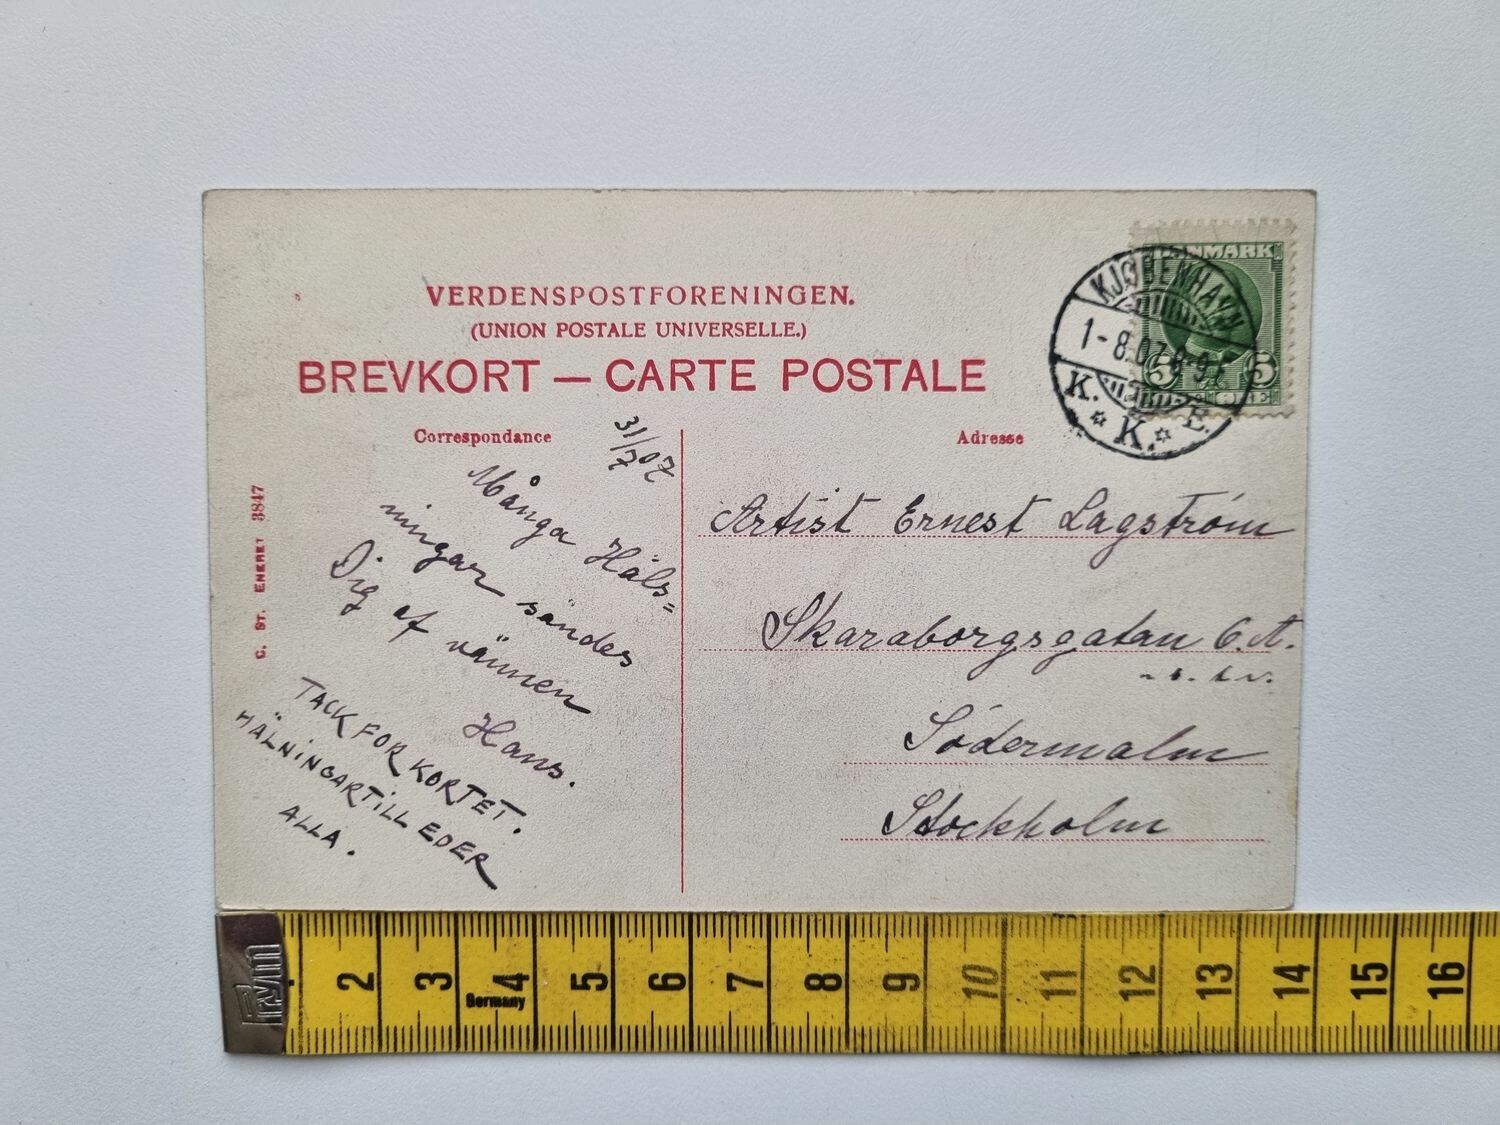 VERDENSPOSTFORENINGEN.
(UNION POSTALE UNIVERSELLE.)
BREVKORT — CARTE POSTALE
Correspondance
Adresse
31/7 07
Många Häls=
ningar sändes
Dig af vännen
Hans.
TACK FOR KORTET.
HÄLNINGAR TILL EDER
ALLA.
C. ST. ENERET 3847
Artist Ernest Lagström
Skaraborgsgatan 6.A.
Södermalm
Stockholm
DANMARK
5 5
ØRE
KJØBENHAVN
1-8.07.8-9 E
K. K. E.
Prym
2 3 4 5 6 7 8 9 10 11 12 13 14 15 16
Germany